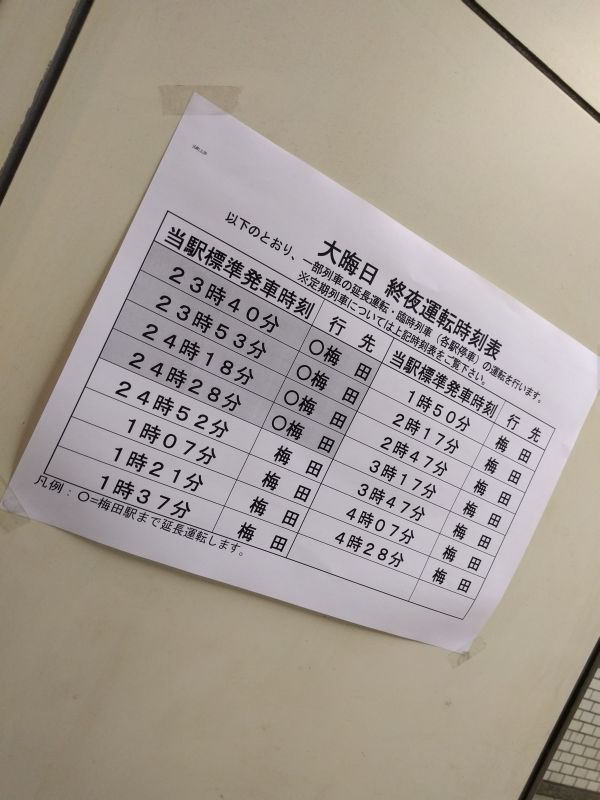 大晦日 終夜運転時刻表
以下のとおり、一部列車の延長運転・臨時列車（各駅停車）の運転を行います。
※定期列車については上記時刻表をご覧下さい。
当駅標準発車時刻 行先 当駅標準発車時刻 行先
23時40分 ○梅田 1時50分 梅田
23時53分 ○梅田 2時17分 梅田
24時18分 ○梅田 2時47分 梅田
24時28分 ○梅田 3時17分 梅田
24時52分 梅田 3時47分 梅田
1時07分 梅田 4時07分 梅田
1時21分 梅田 4時28分 梅田
1時37分 梅田
凡例：○=梅田駅まで延長運転します。